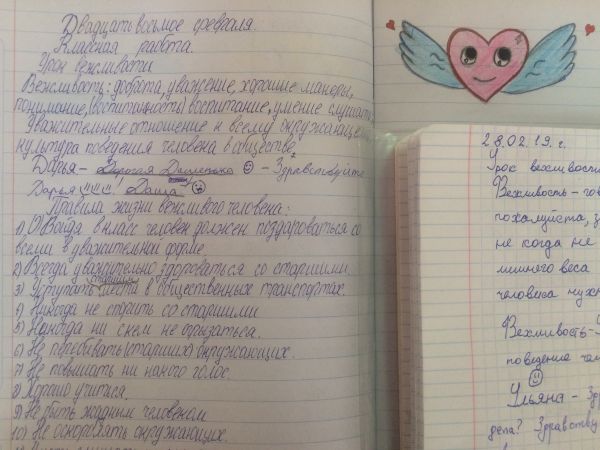 Двадцать восьмое февраля.
Классная работа.
Урок вежливости
Вежливость: доброта, уважение, хорошие манеры,
понимание, (воспитанность) воспитание, умение слушать
Уважительные отношение к всему окружающе
культура поведения человека в обществе.
Дарья - Дорогая - Здравствуйте
Дарья!!! Даша
Правила жизни вежливого человека:
1) Войдя в класс человек должен поздароваться со
всеми в уважительной форме.
2) Всегда уважительно здороваться со старшими.
3) Уступать старшим места в общественных транспортах.
4) Никогда не спорить со старшими
5) Никогда ни с кем не огрызаться.
6) Не перебевать (старших) окружающих.
7) Не повышать ни на кого голос.
8) Хорошо учиться.
9) Не быть жадным человеком
10) Не оскорблять окружающих.
28.02.19.г.
Урок вежливости
Вежливость - го
пожалуйста, з
не когда не
лишнего веса
человека нужн
Вежливость -
поведение чел
Ульяна - Зд
дела? Здравству